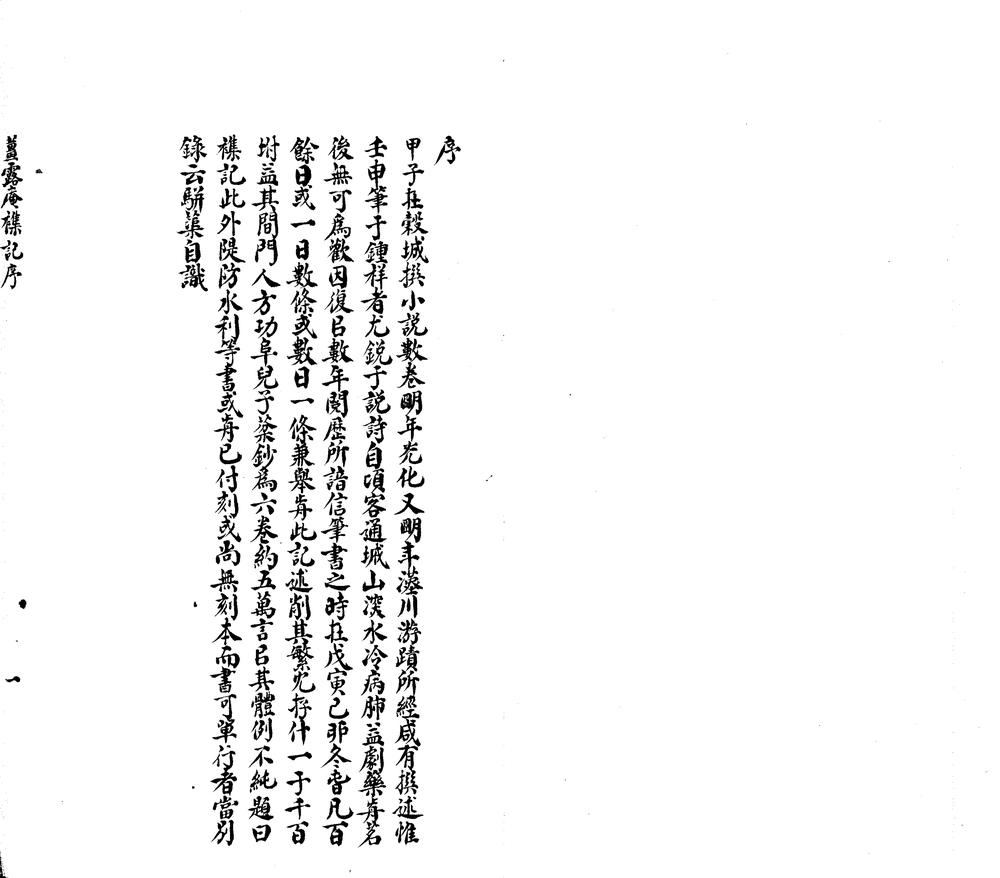 序
甲子在穀城撰小說數卷明年光化又明年川游蹟所經咸有撰述惟
壬申筆于鍾祥者尤銳于說詩自頃客通城山深水冷病肺益劇藥前茗
後無可爲歡因復㠯數年閱歷所諳信筆書之時在戊寅己卯冬春凡百
餘日或一日數條或數日一條兼舉前此記述削其繁冗存什一于千百
坿益其間門人方功阜兒子棻鈔爲六卷約五萬言㠯其體例不純題曰
襍記此外隄防水利等書或前已付刻或尚無刻本而書可單行者當別
錄云駢蕖自識
薑露庵襍記序
一